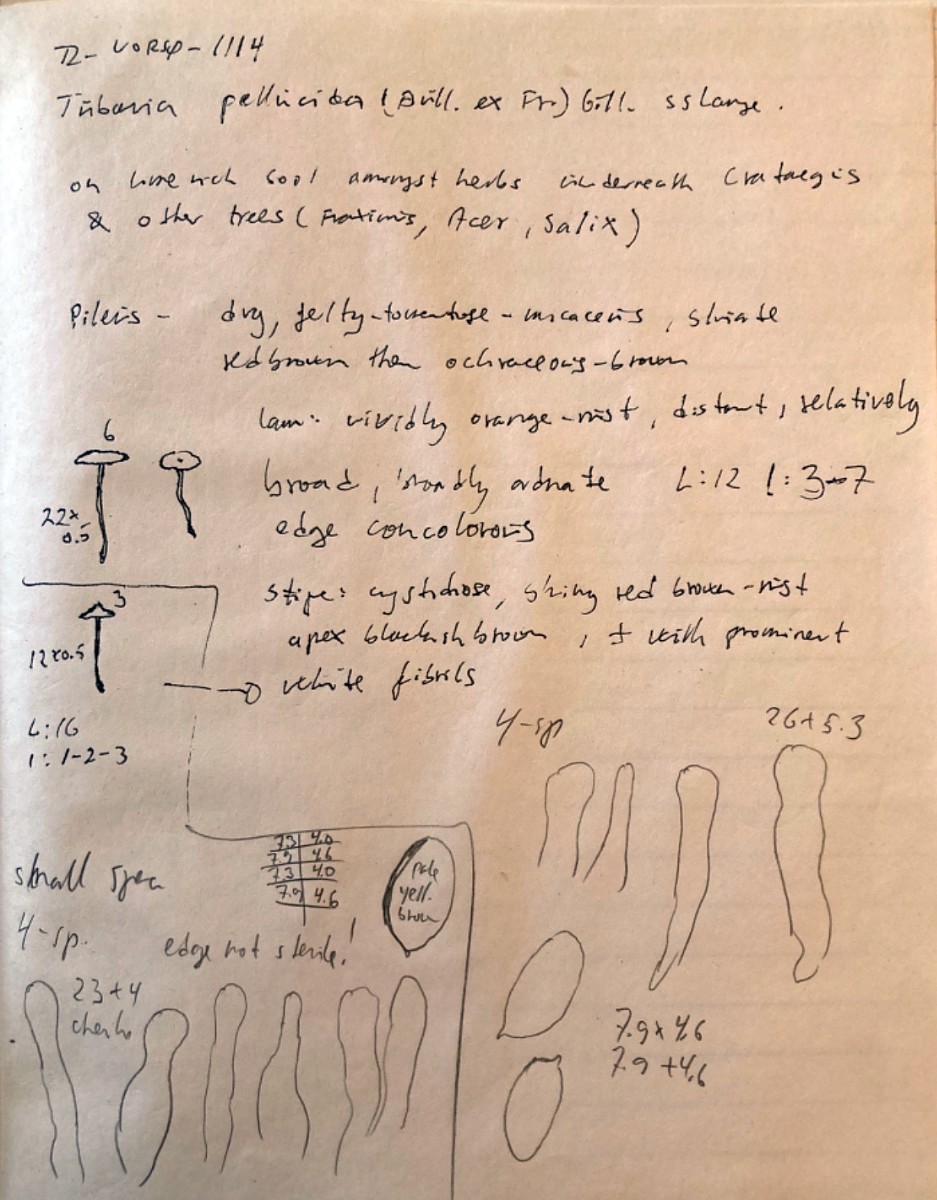 Tubaria pellucida (Bull. ex Fr.) Gill. ss Lange.
on lime rich soil amongst herbs underneath Crataegus
& other trees (Fraxinus, Acer, Salix)
Pileus - dry, felty-tomentose-micaceus, striate
redbrown then ochraceous-brown
lam: vividly orange-rust, distant, relatively
broad, broadly adnate L:12 l:3-7
edge concolorous
6
22x
0.5
stipe: cystidiose, shiny red brown-rust
apex blackish brown, ± with prominent
white fibrils
3
12x0.5
L:16
l: 1-2-3
4-sp
26+5.3
small spec
4-sp.
7.3 4.0
7.9 4.6
7.3 4.0
7.9 4.6
pale
yell.
brown
edge not sterile!
23+4
cheilo
7.9x4.6
7.9+4.6